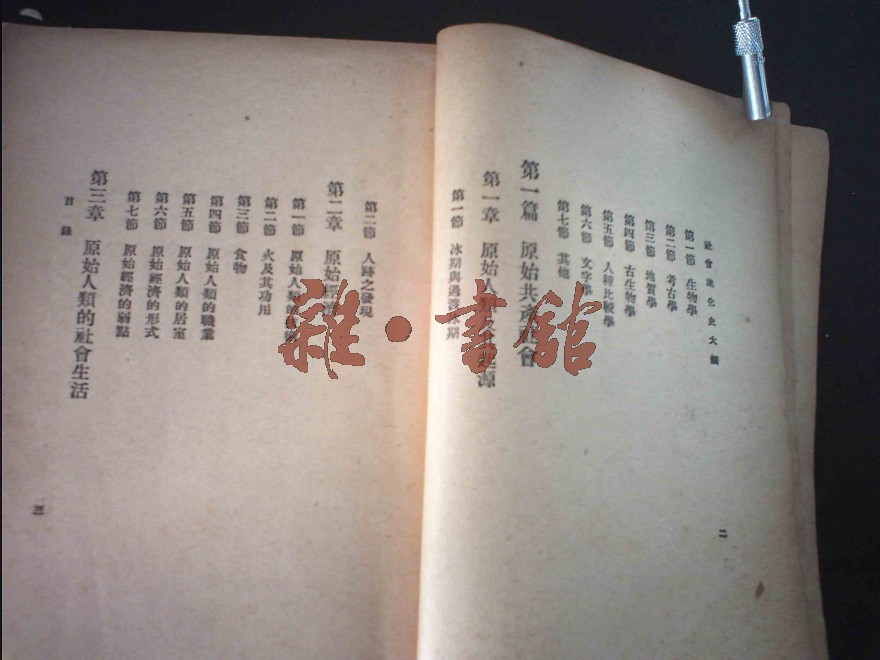 社會進化史大綱
第一節 生物學
第二節 考古學
第三節 地質學
第四節 古生物學
第五節 人種比較學
第六節 文字學
第七節 其他
第一篇 原始共產社會
第一章 原始人類及其起源
第一節 冰期與過渡冰期
二
第二節 人跡之發現
第二章 原始經濟
第一節 原始人類的
第二節 火及其功用
第三節 食物
第四節 原始人類的職業
第五節 原始人類的居室
第六節 原始經濟的形式
第七節 原始經濟的弱點
第三章 原始人類的社會生活
目錄
三
雜·書館